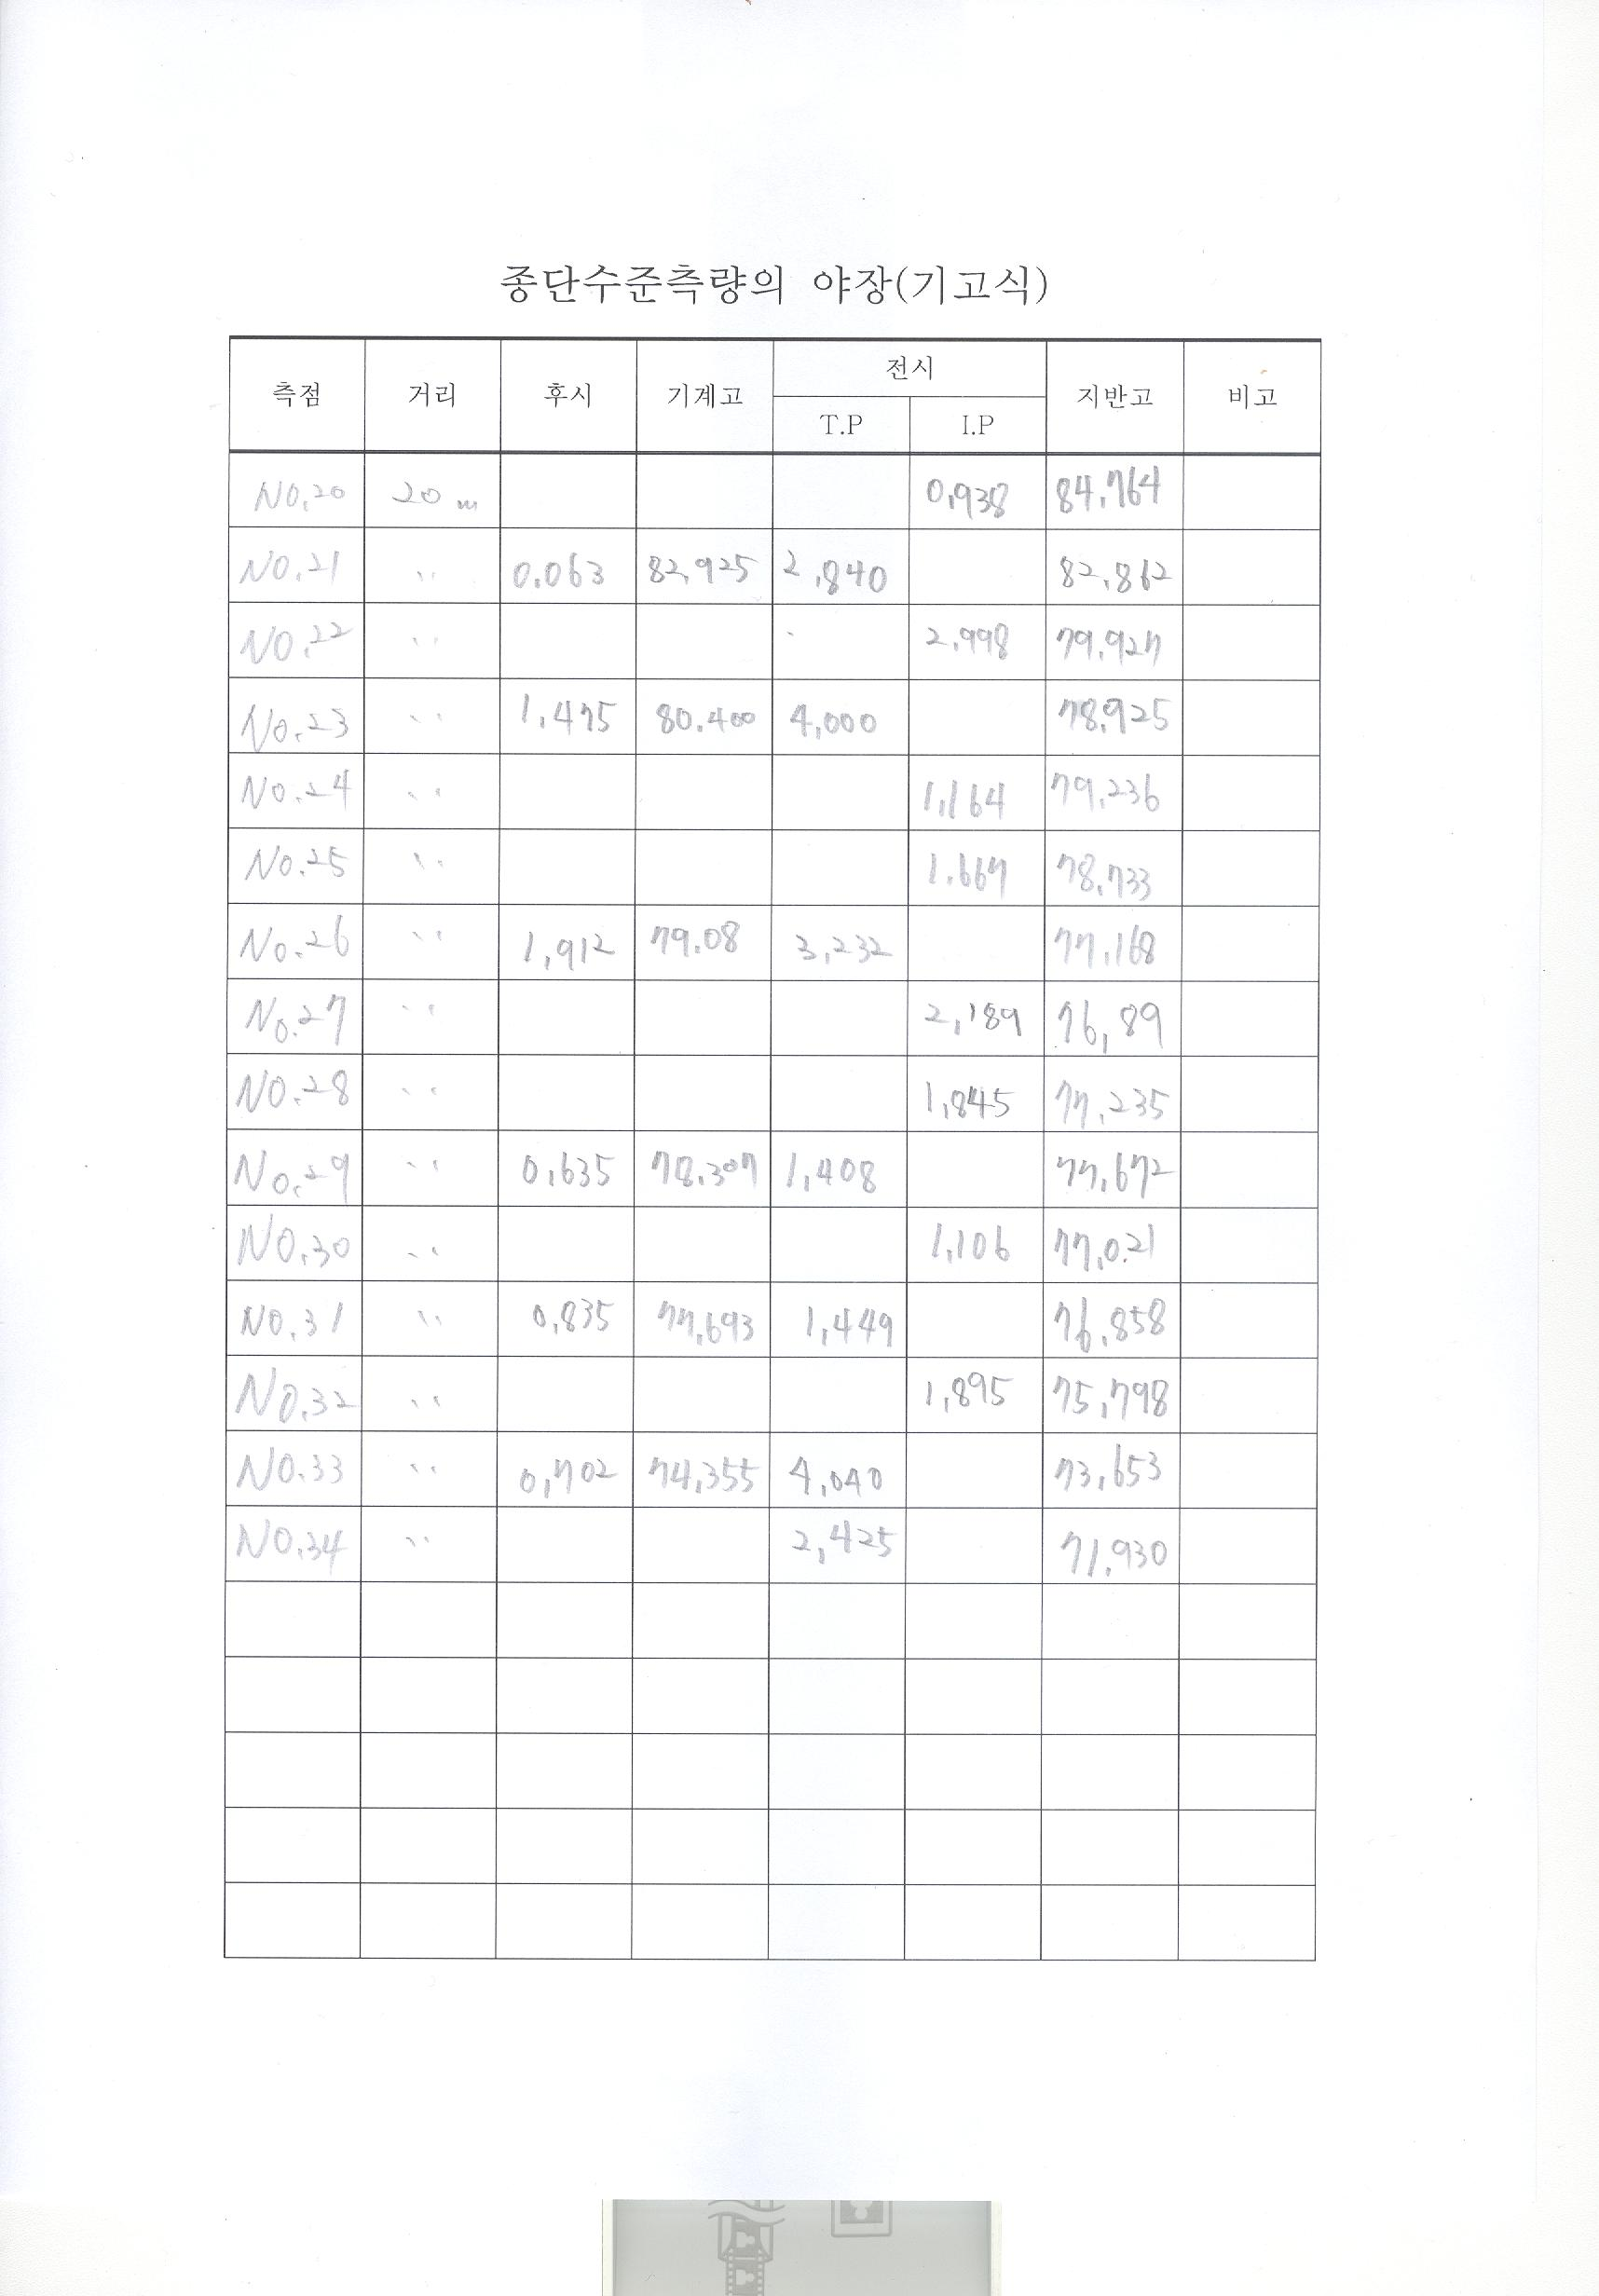 종단수준측량의 야장(기고식)
측점 거리 후시 기계고 전시 지반고 비고
T.P I.P
NO.20 20 m 0,938 84,764
NO.21 〃 0.063 82,925 2,840 82,862
NO.22 〃 2,998 79,927
NO.23 〃 1,475 80.400 4,000 78,925
NO.24 〃 1,164 79,236
NO.25 〃 1.667 78,733
NO.26 〃 1,912 79.08 3,232 77,168
NO.27 〃 2,189 76,89
NO.28 〃 1,845 77,235
NO.29 〃 0,635 78.307 1,408 77,672
NO.30 〃 1,106 77,021
NO.31 〃 0,835 77,693 1,449 76,858
NO.32 〃 1,895 75,798
NO.33 〃 0,702 74,355 4,040 73,653
NO.34 〃 2,425 71,930